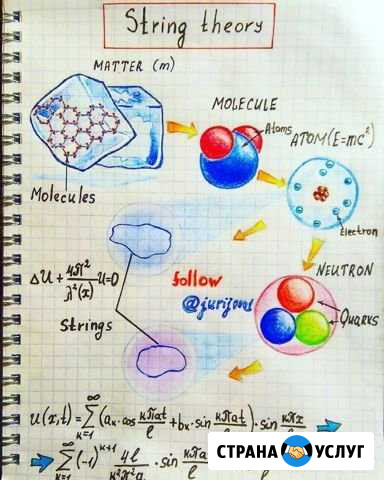 String theory
MATTER (m)
MOLECULE
Atoms
ATOM (E=mc²)
Molecules
Electron
NEUTRON
ΔU + 4π²/λ²(x) U=0
follow
@jurijons
Quarks
Strings
u(x,t) = ∞ Σ k=1 (aₖ·cos kπat/l + bₖ·sin kπat/l)·sin kπx/l
∞ Σ k=1 (-1)ᵏ⁺¹ 4l/k²π²a · sin kπa
СТРАНА УСЛУГ